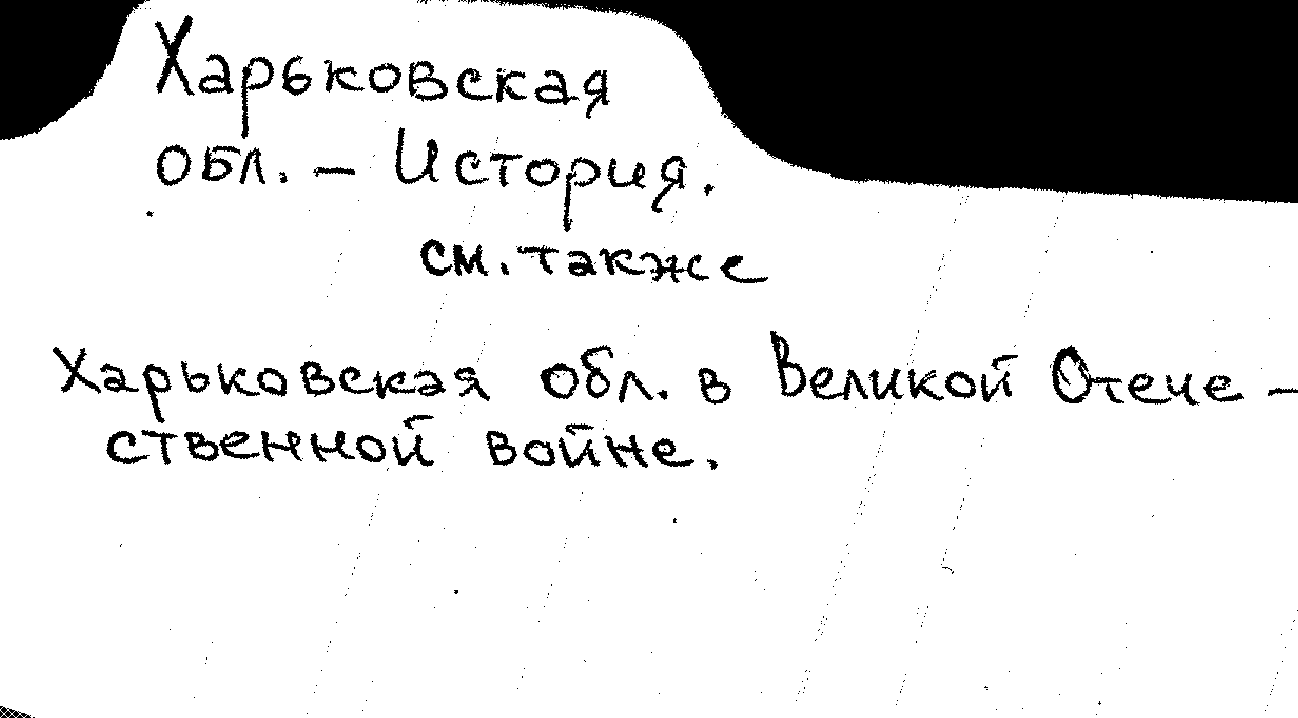 Харьковская
обл. – История.
см. также
Харьковская обл. в Великой Отече-
ственной войне.